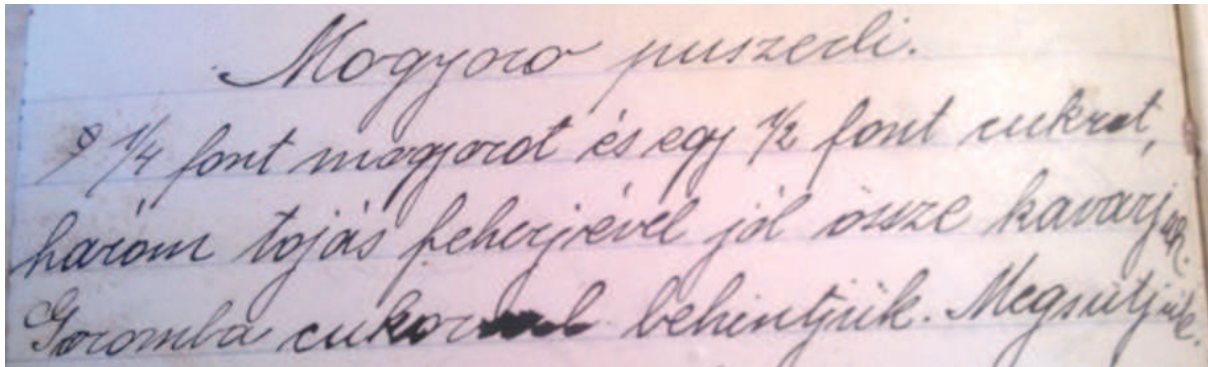 Mogyoro puszedli.
1/4 font mogyorot és egy 1/2 font cukrot,
három tojás feherjével jól össze kavarjuk.
Goromba cukorral behintjük. Megsütjük.